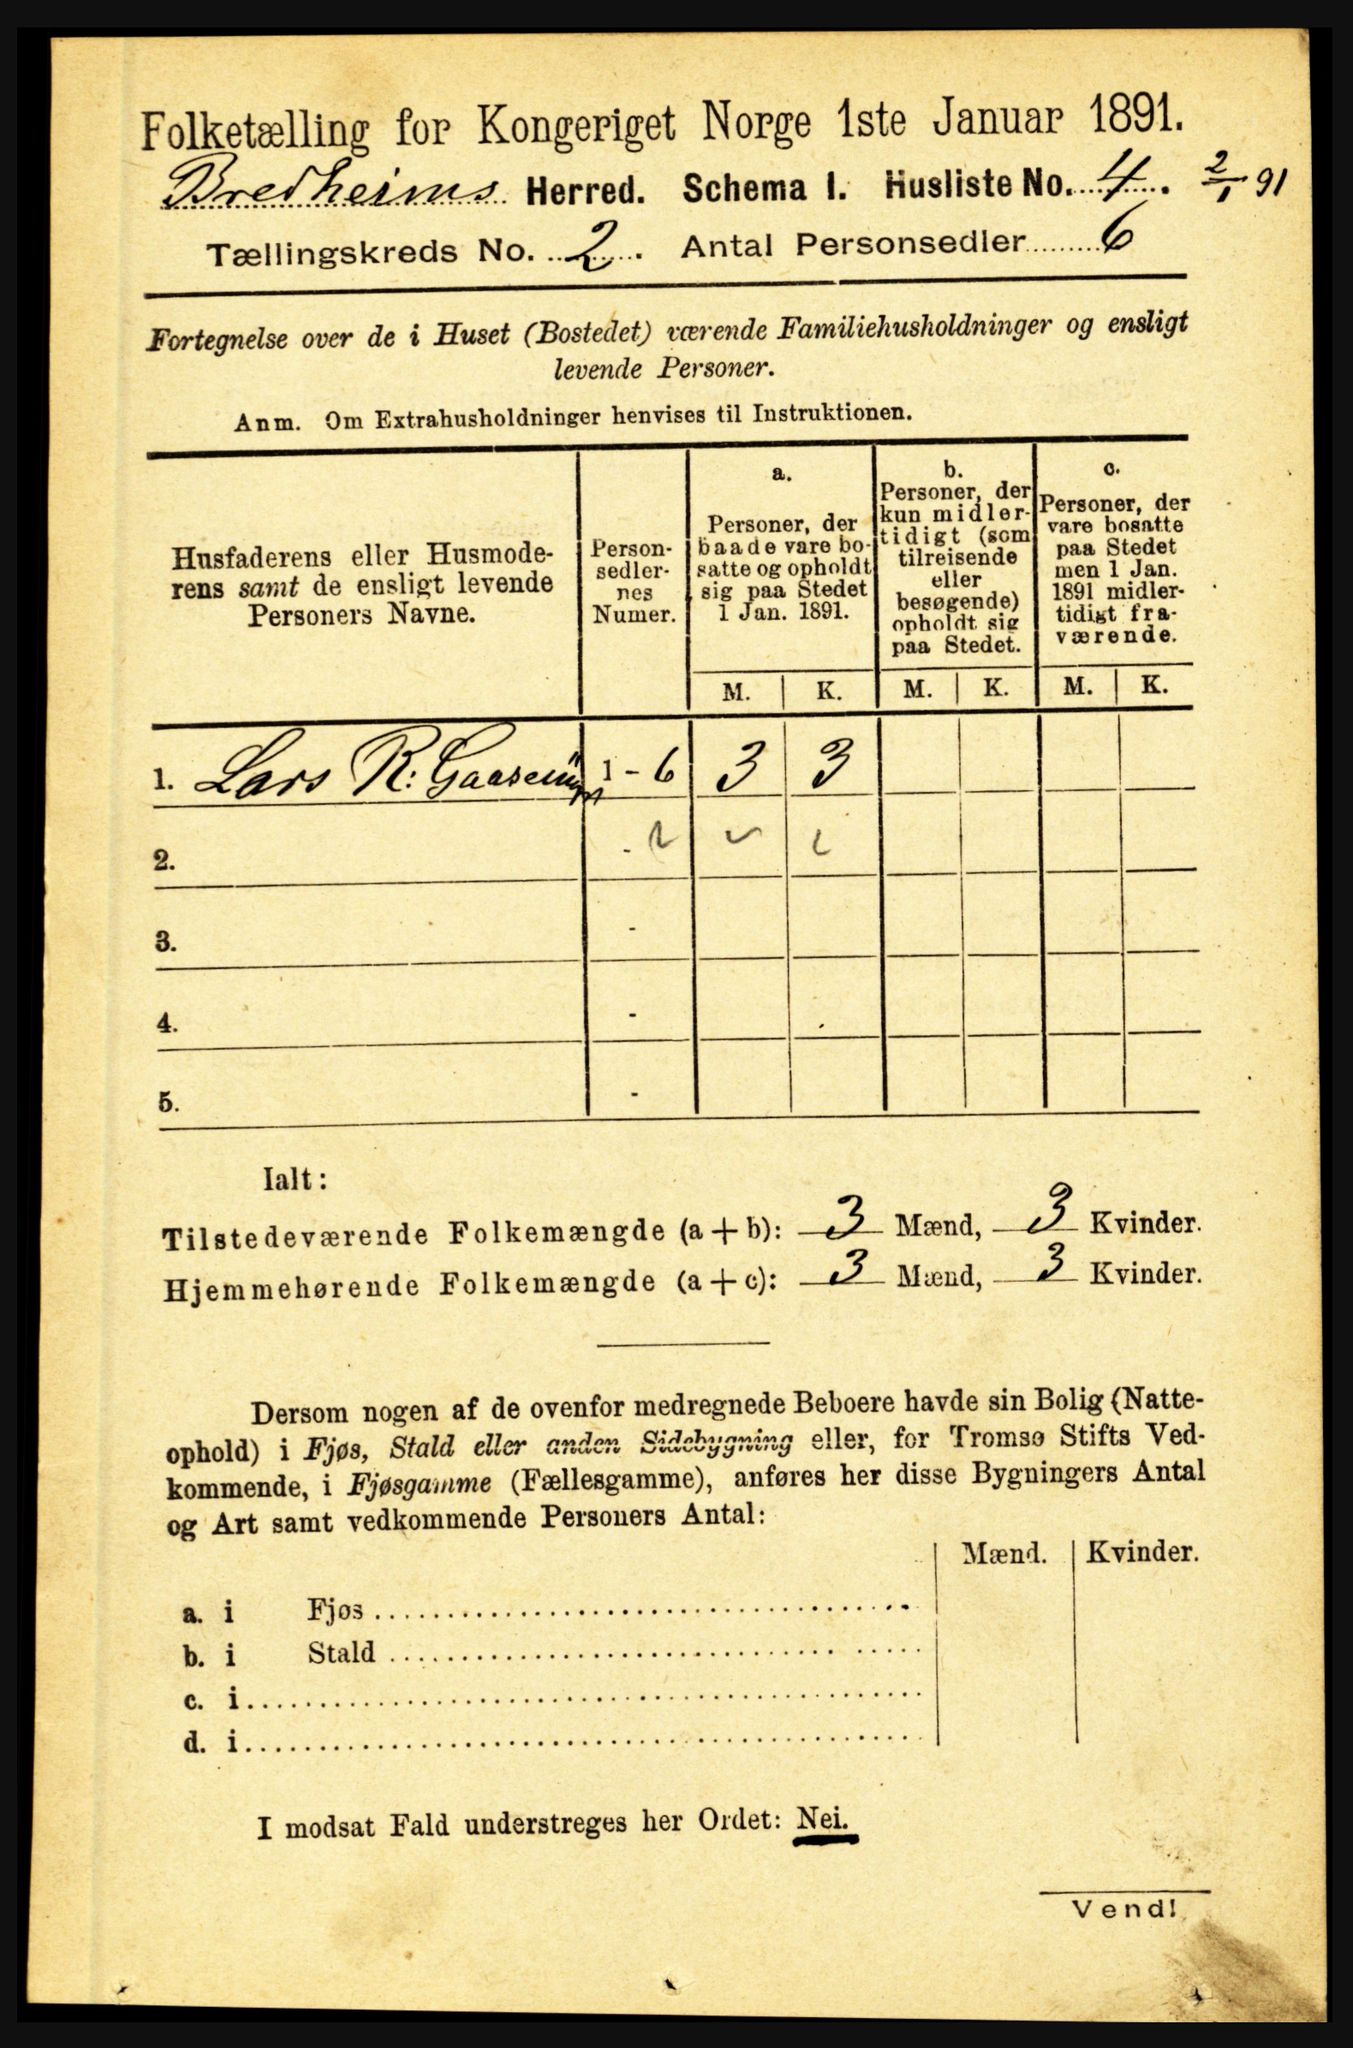 Folketælling for Kongeriget Norge 1ste Januar 1891.
Bredheims Herred. Schema 1. Husliste No. 4. 2/1 91
Tællingskreds No. 2. Antal Personsedler 6
Fortegnelse over de i Huset (Bostedet) værende Familiehusholdninger og ensligt
levende Personer.
Anm. Om Extrahusholdninger henvises til Instruktionen.
Husfaderens eller Husmode-
rens samt de ensligt levende
Personers Navne.
Person-
sedler-
nes
Numer.
a.
Personer, der
baade vare bo-
satte og opholdt
sig paa Stedet
1 Jan. 1891.
b.
Personer, der
kun midler-
tidigt (som
tilreisende
eller
besøgende)
opholdt sig
paa Stedet.
c.
Personer, der
vare bosatte
paa Stedet
men 1 Jan.
1891 midler-
tidigt fra-
værende.
M. K. M. K. M. K.
1. Lars R. 1 - 6 3 3
2. -
3. -
4. -
5. -
Ialt:
Tilstedeværende Folkemængde (a + b): 3 Mænd, 3 Kvinder.
Hjemmehørende Folkemængde (a + c): 3 Mænd, 3 Kvinder.
Dersom nogen af de ovenfor medregnede Beboere havde sin Bolig (Natte-
ophold) i Fjøs, Stald eller anden Sidebygning eller, for Tromsø Stifts Ved-
kommende, i Fjøsgamme (Fællesgamme), anføres her disse Bygningers Antal
og Art samt vedkommende Personers Antal:
Mænd. Kvinder.
a. i Fjøs
b. i Stald
c. i
d. i
I modsat Fald understreges her Ordet: Nei.
Vend!